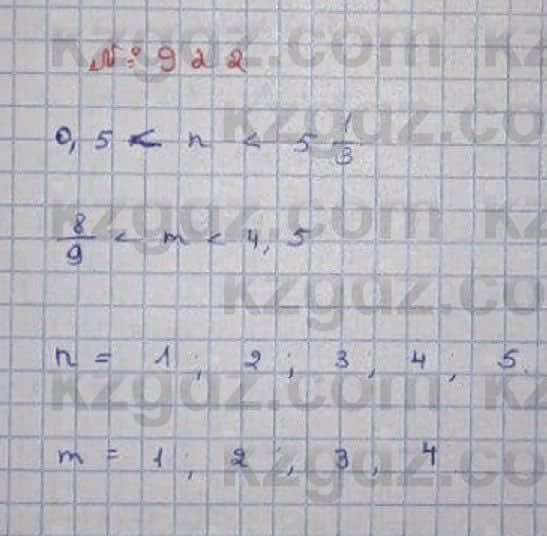 kzgdz.com kzgdz.com
№ 922
kzgdz.com
0,5 < n < 5 1/3
kzgdz.com kzgdz.com
8/9 < m < 4,5
kzgdz.com
n = 1; 2; 3; 4; 5.
kzgdz.com kzgdz.com
m = 1; 2; 3; 4
kzgdz.com